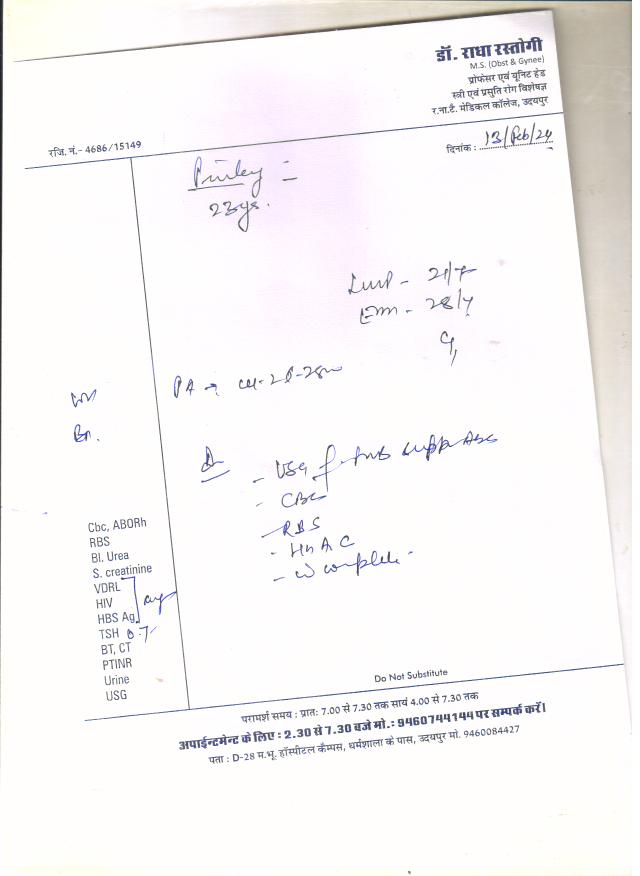 डॉ. राधा रस्तोगी
M.S. (Obst & Gynee)
प्रोफेसर एवं यूनिट हेड
स्त्री एवं प्रसुति रोग विशेषज्ञ
र.ना.टै. मेडिकल कॉलेज, उदयपुर
रजि. नं.- 4686/15149
दिनांक : 13/Feb/24
23ys.
LMP - 21/7
- 28/4
PA →
- USG
- CBC
- RBS
- HbAC
Cbc, ABORh
RBS
Bl. Urea
S. creatinine
VDRL
HIV
HBS Ag
TSH
BT, CT
PTINR
Urine
USG
Do Not Substitute
परामर्श समय : प्रातः 7.00 से 7.30 तक सायं 4.00 से 7.30 तक
अपाईन्टमेन्ट के लिए : 2.30 से 7.30 बजे मो.: 9460744144 पर सम्पर्क करें।
पता : D-28 म.भू. हॉस्पीटल कैम्पस, धर्मशाला के पास, उदयपुर मो. 9460084427